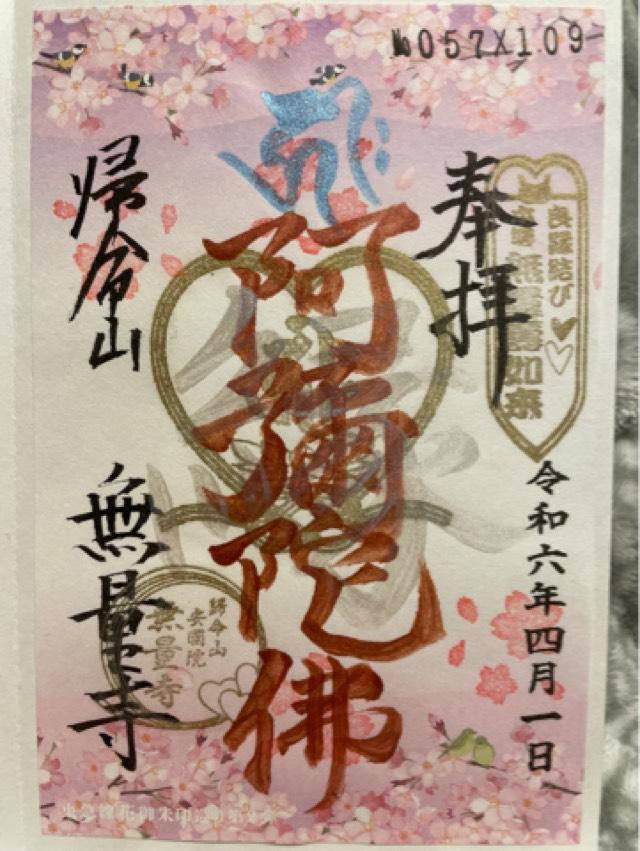 №057X109
奉拝
良縁結び
無量寿如来
阿彌陀佛
令和六年四月一日
帰命山
無量寺
帰命山
安國院
無量寺